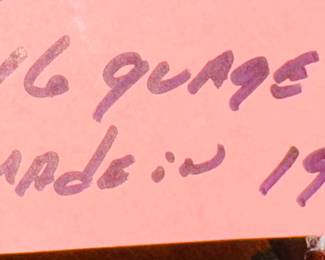 16 guage
made in 19